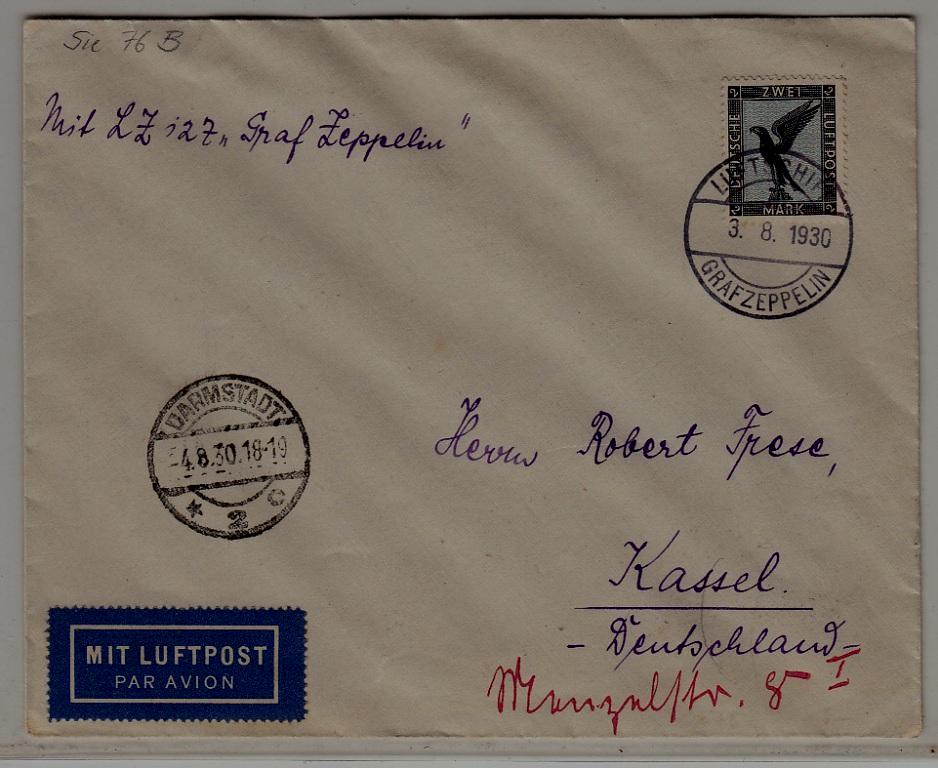 Sie 76 B
Mit LZ 127 „Graf Zeppelin"
2 ZWEI 2
DEUTSCHE
LUFTPOST
2 MARK 2
LUFTSCHIFF
3. 8. 1930
GRAFZEPPELIN
DARMSTADT
-4.8.30.18-19
* 2 c
Herrn Robert Frese,
Kassel.
- Deutschland -
Menzelstr. 8 I
MIT LUFTPOST
PAR AVION